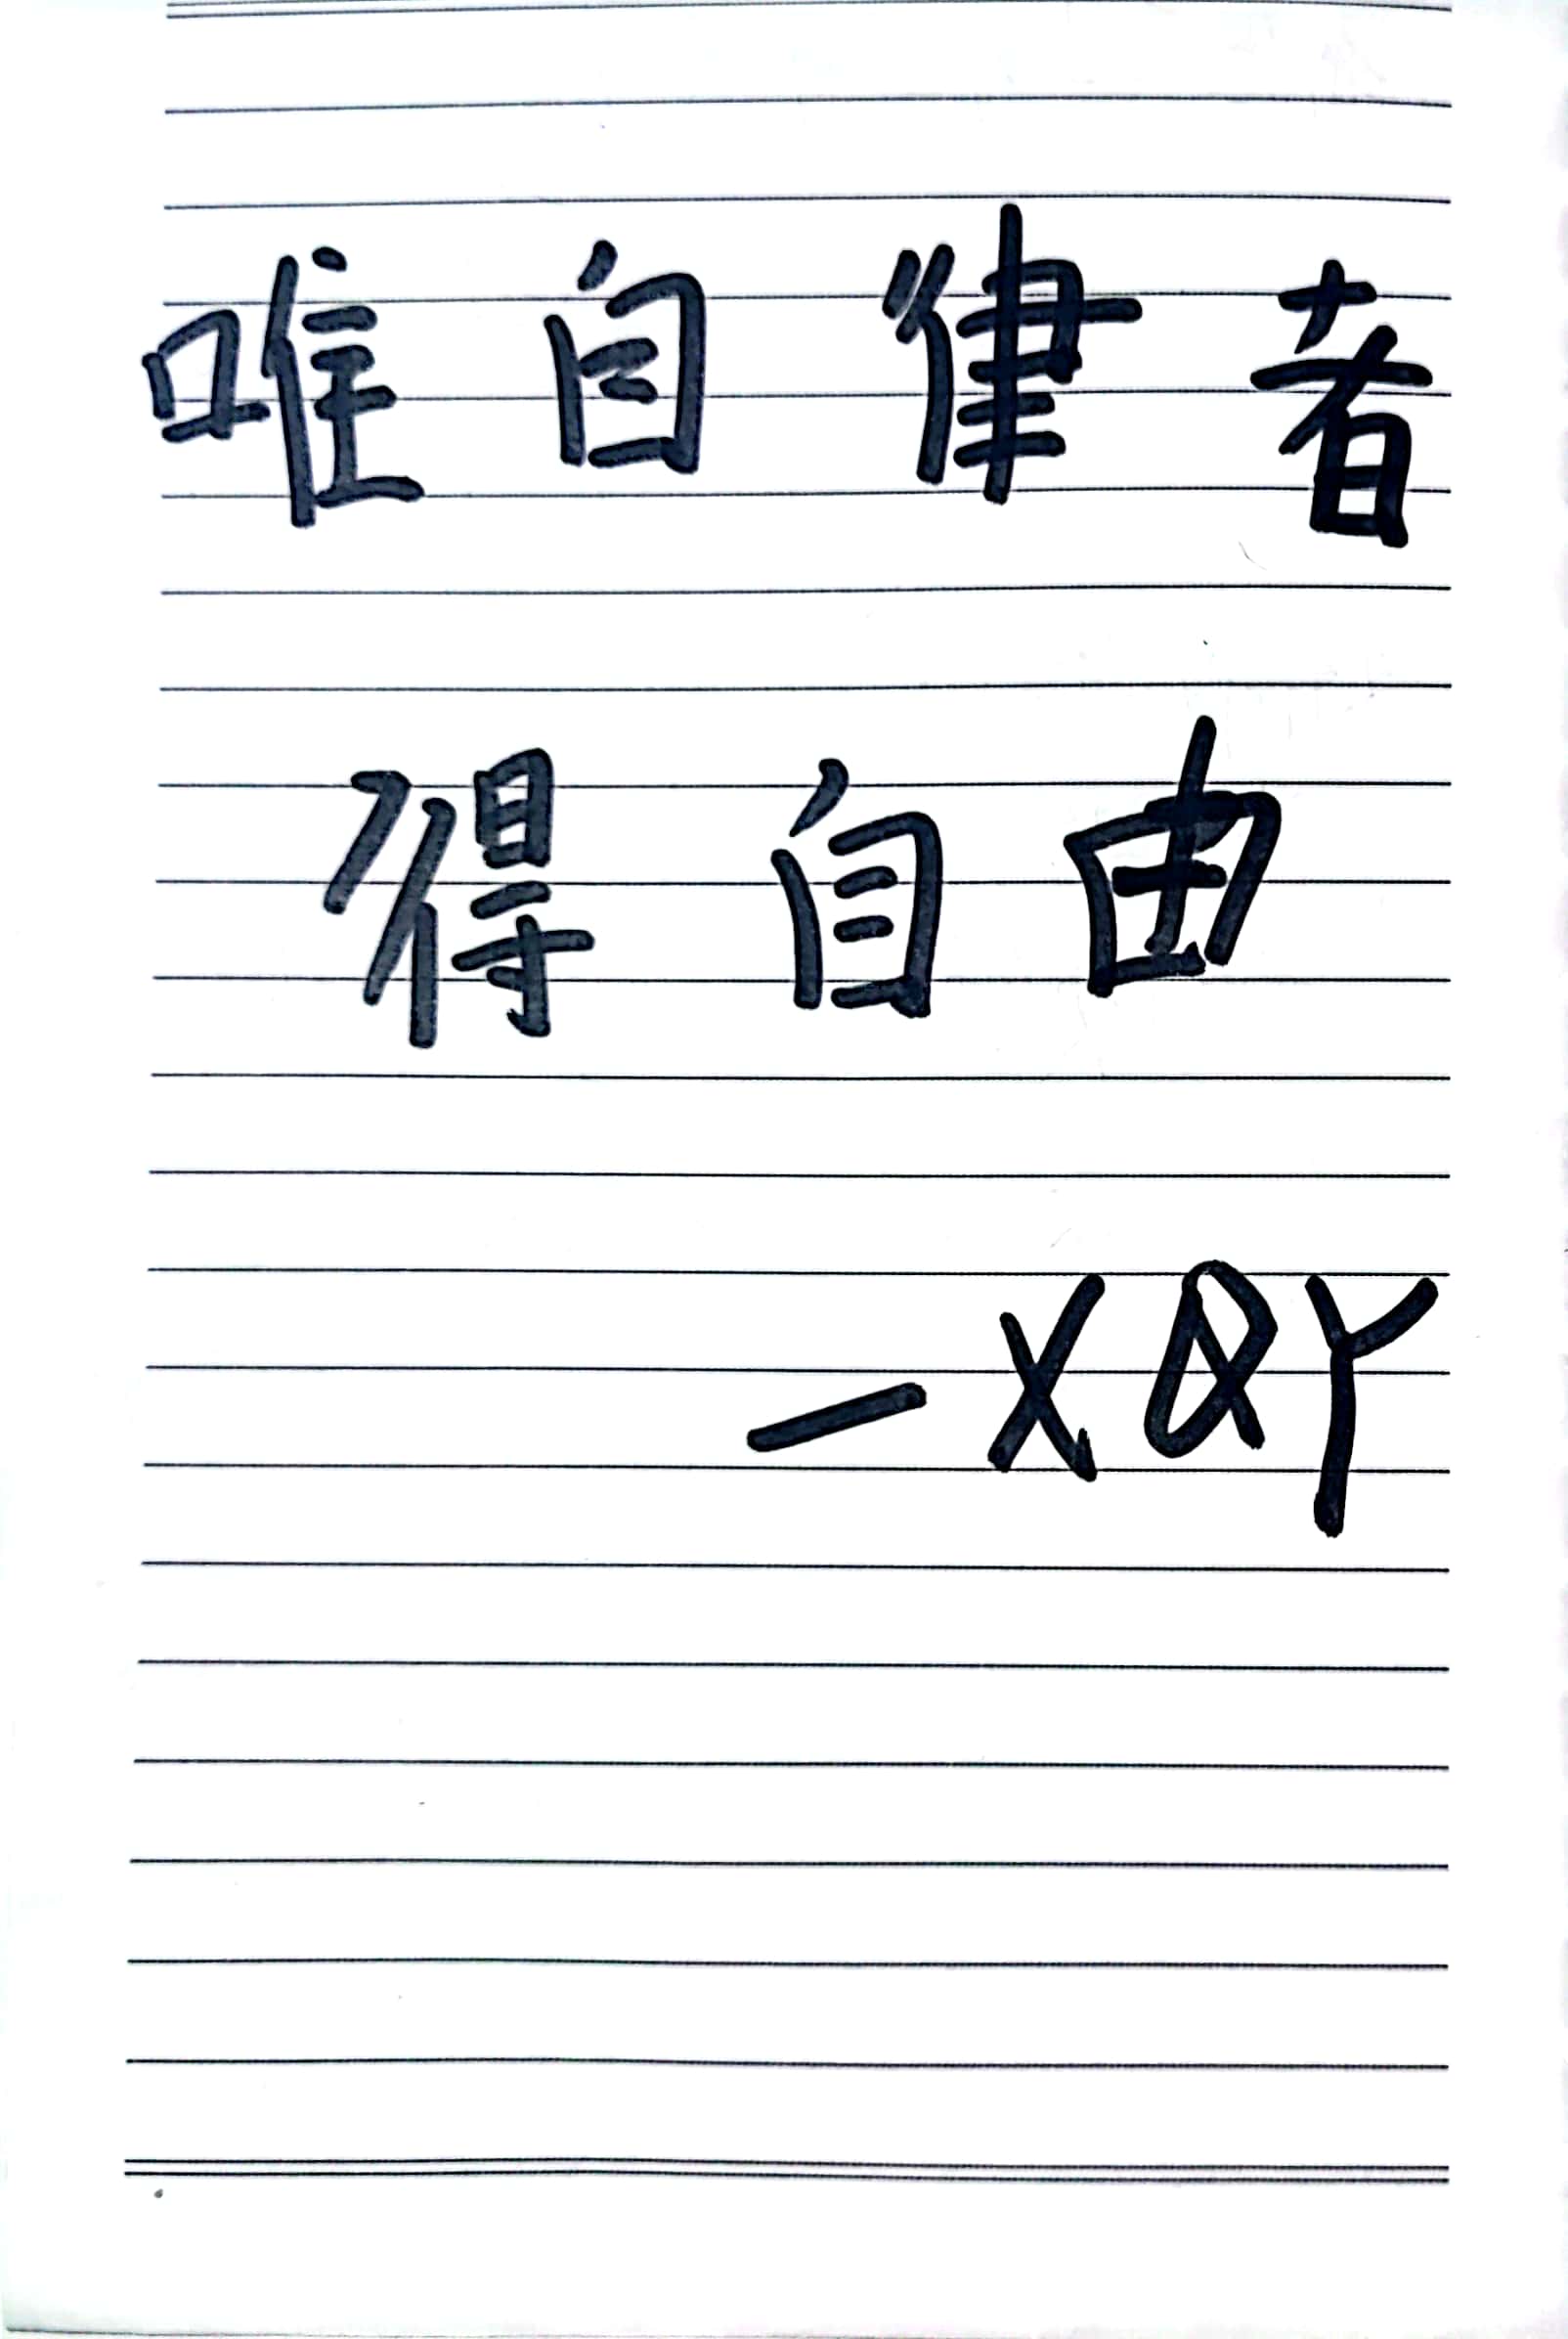 唯自律者
得自由
—XQY